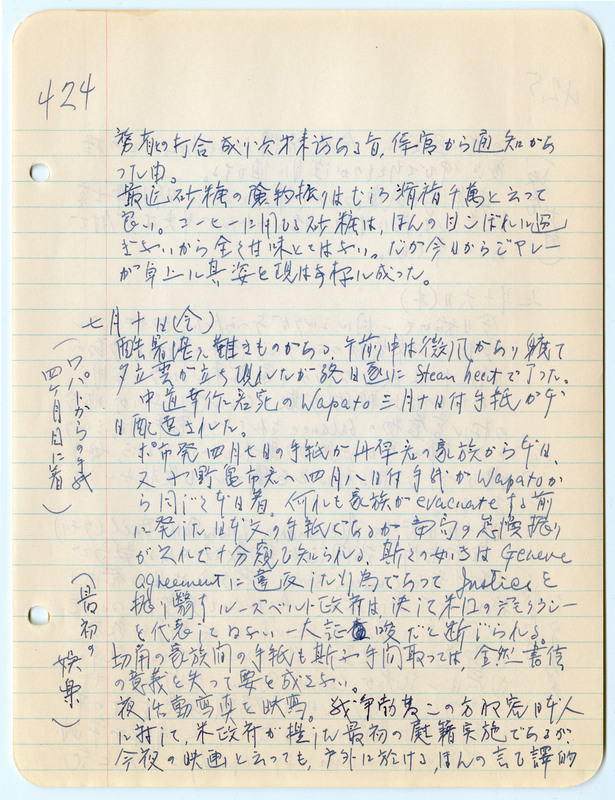 424
打合 成り次第来訪ある旨、 から通知があ
った由。
最近砂糖の
良い。コーヒーに用ひる砂糖は、ほんの目こぼれに過
ぎないから全く甘味とてはない。だが今日からゼアレー
が卓上に真姿を現は す に成った。
七月十日(金)
酷暑 難きものがある、午前中は微風があり
夕立雲が立ち現れたが終日遂に Steam heat で了った。
中道 君宛の Wapato 三月十日付手紙が今
日配達された。
ポ市発四月七日の手紙が 君の家族から今日、
又 野亀市君へ四月八日付手紙が Wapato か
ら同じく今日着。何れも家族が evacuate する前
に発した日本文の手紙であるが当局の怠慢振り
が之れで十分窺ひ知られる、斯くの如きは Geneve
agreement に違反した行為であって Justice を
振り翳すルーズベルト政府は、決して米国のデモクラシー
を代表してはゐない一大証 だと断じられる。
切角の家族間の手紙も斯ふ手間取っては、全然書信
の意義を失って要を成さない。
夜活動写真を映写。戦争勃発この方収容日本人
に対して、米政府が提した最初の慰藉実施であるが
今夜の映画と云っても、戸外に於ける、ほんの言ひ訳的
(ワパトからの手紙
四ヶ月目に着)
(最初の
娯楽)